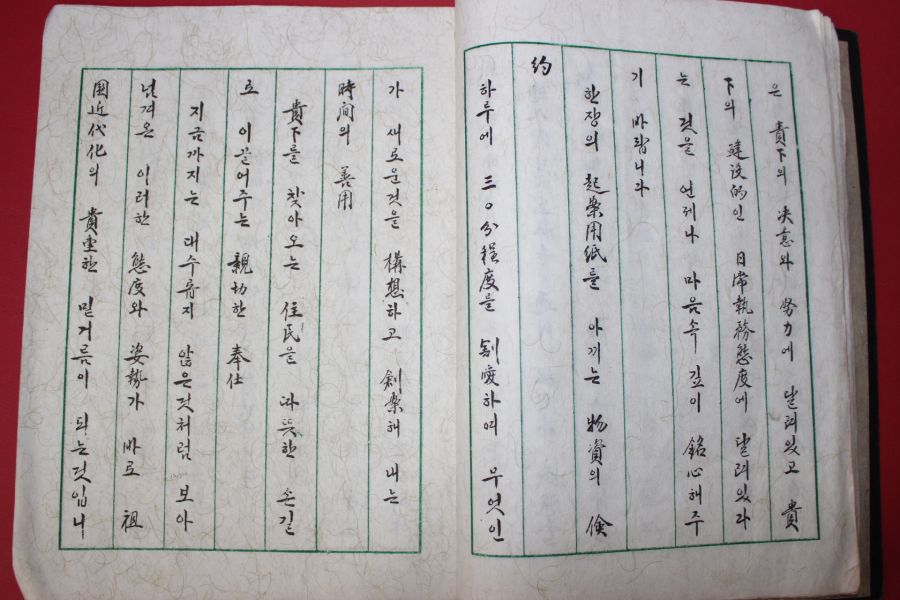 은 貴下의 決意와 努力에 달려있고 貴
下의 建設的인 日常執務態度에 달려있다
는 것을 언제나 마음속 깊이 銘心해주
기 바랍니다
한장의 起案用紙를 아끼는 物資의 儉
約
하루에 三〇分程度를 割愛하여 무엇인
가 새로운것을 構想하고 創案해 내는
時間의 善用
貴下를 찾아오는 住民을 따뜻한 손길
로 이끌어주는 親切한 奉仕
지금까지는 대수롭지 않은것처럼 보아
넘겨온 이러한 態度와 姿勢가 바로 祖
國近代化의 貴重한 밑거름이 되는것입니